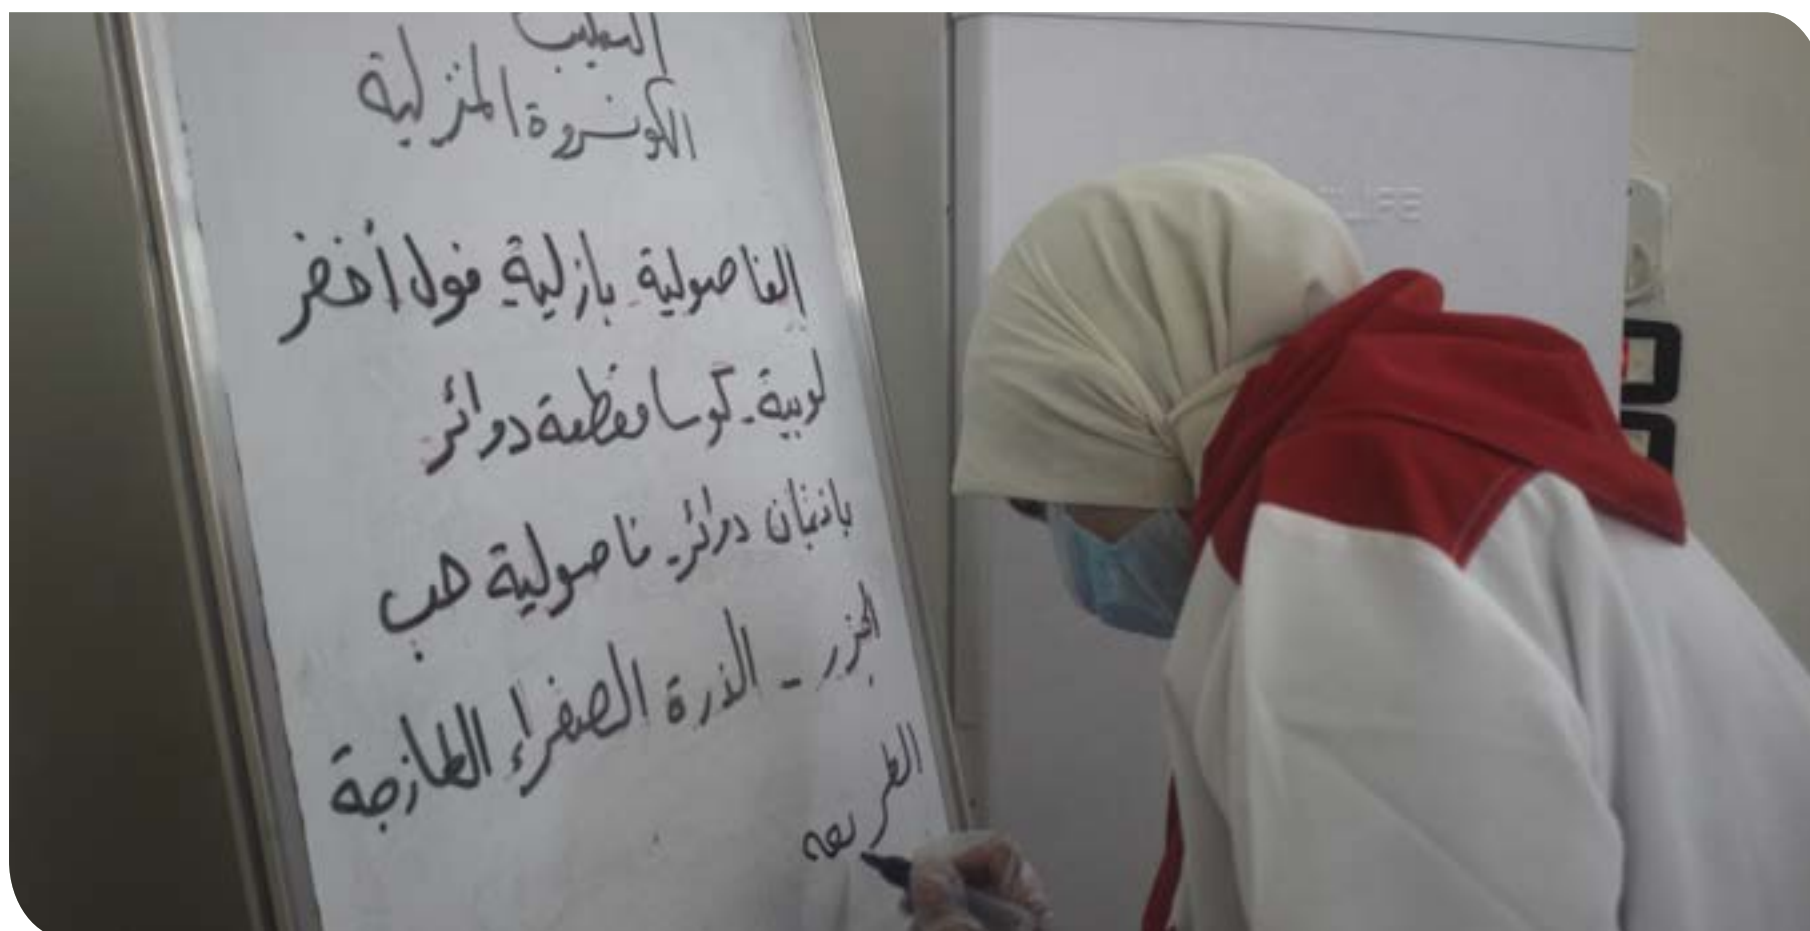 الكونسروة المنزلية
الفاصولية بازلية فول أخضر
لوبية - كوسا مقطعة دوائر
باذنجان دوائر - فاصولية حب
الجزر - الذرة الصفراء الطازجة
الطريقه